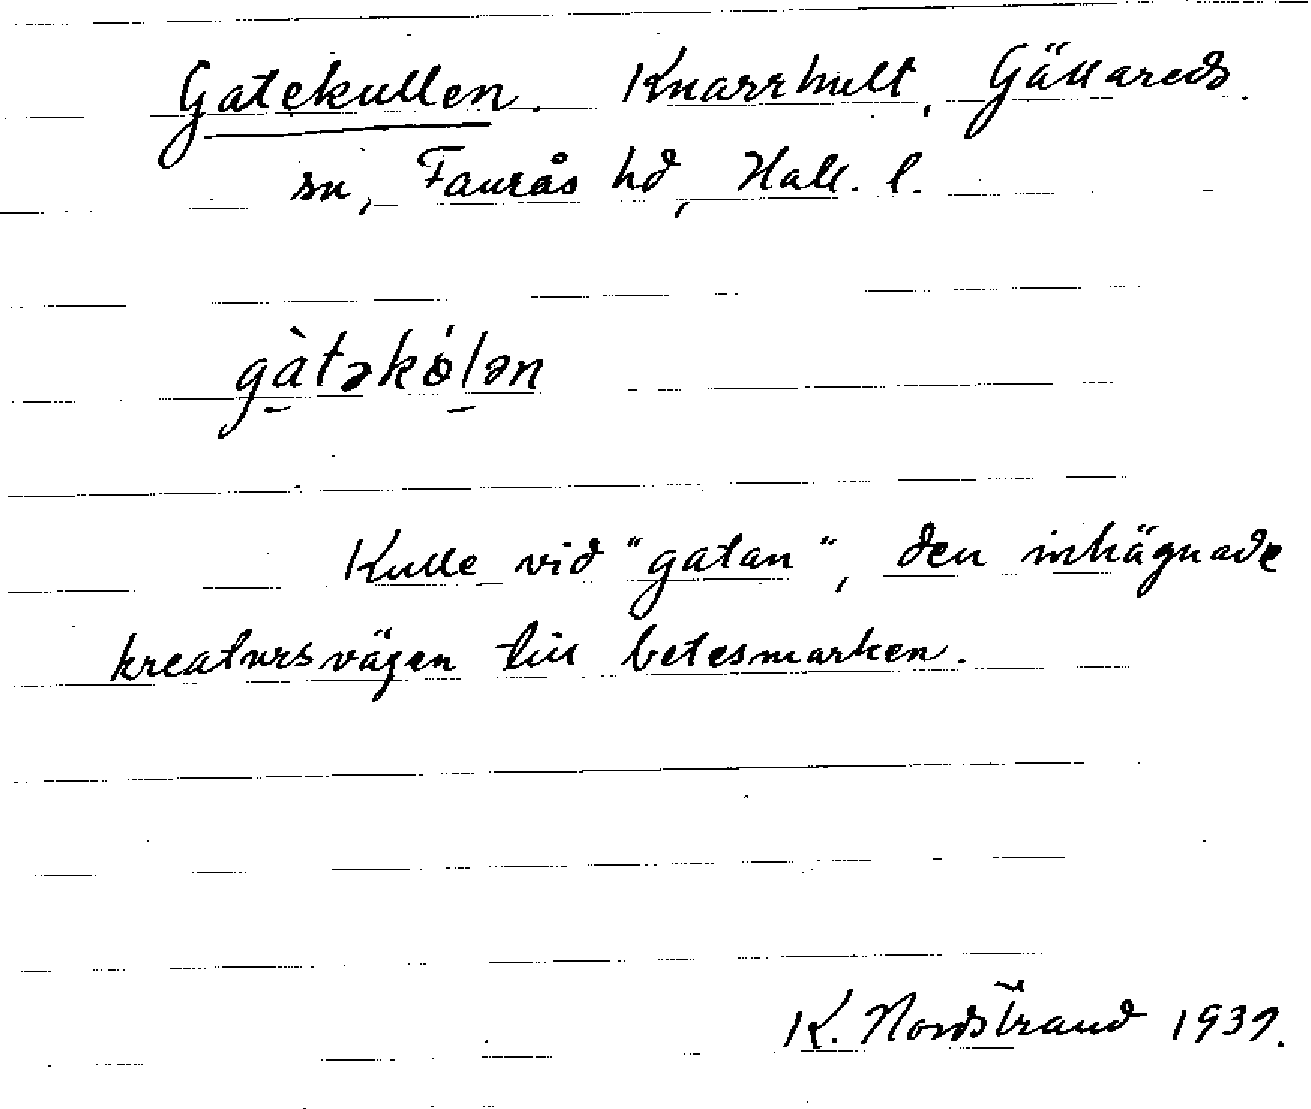 Gatekullen. Knarrhult, Gällareds
sn, Faurås hd, Hall. l.
gàtəkólən
Kulle vid "gatan", den inhägnade
kreatursvägen till betesmarken.
K. Nordstrand 1937.